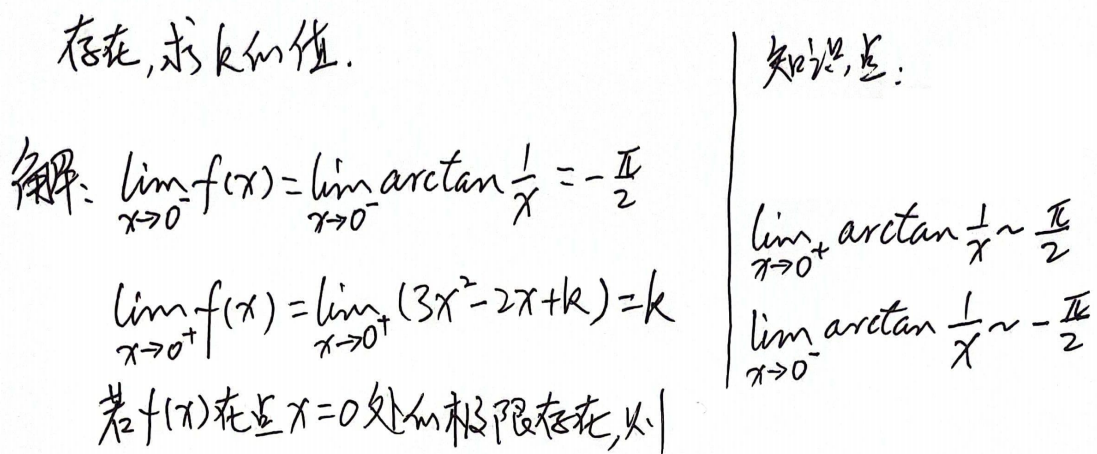 存在,求k的值.
解: lim_{x→0⁻} f(x) = lim_{x→0⁻} arctan 1/x = -π/2
lim_{x→0⁺} f(x) = lim_{x→0⁺} (3x²-2x+k) = k
若f(x)在点x=0处的极限存在,则
知识点:
lim_{x→0⁺} arctan 1/x ~ π/2
lim_{x→0⁻} arctan 1/x ~ -π/2